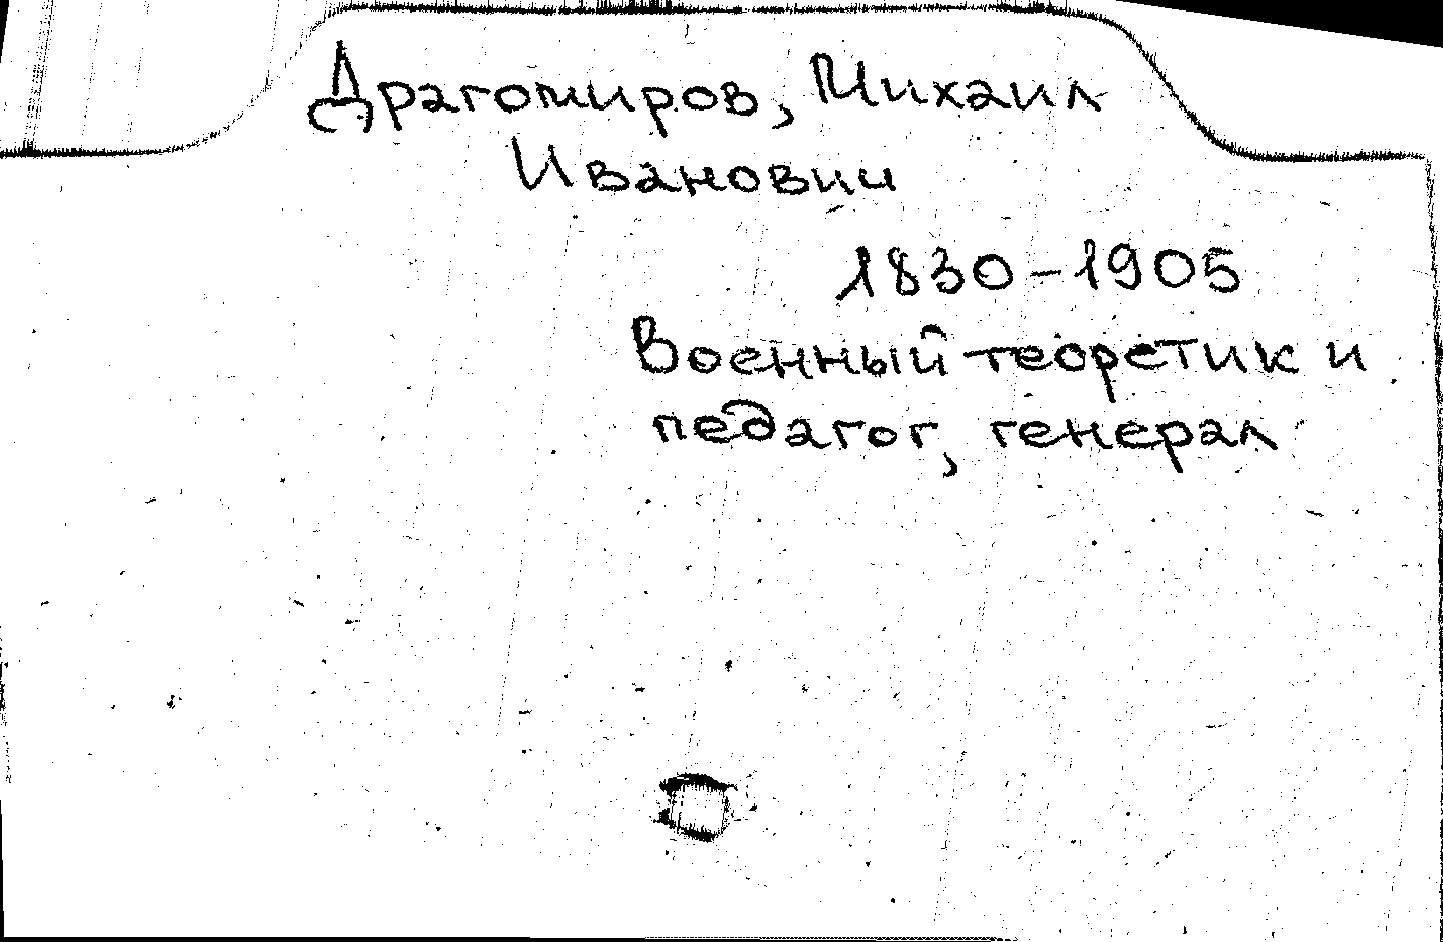 Драгомиров, Михаил
Иванович
1830-1905
Военный теоретик и
педагог, генерал